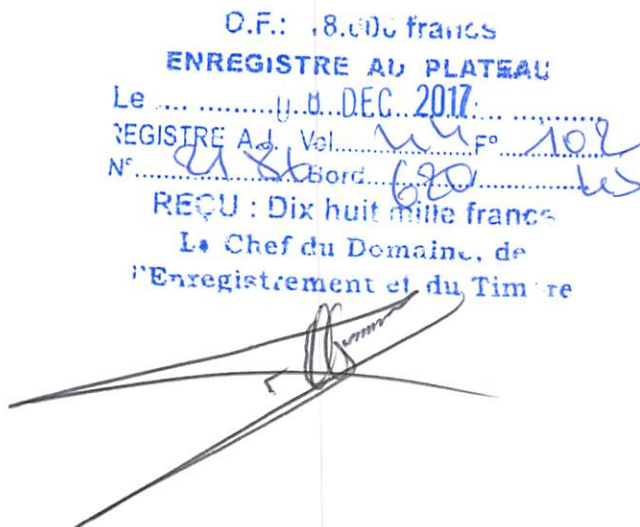 D.F.: 18.000 francs
ENREGISTRE AU PLATEAU
Le .... ......... 0 8 DEC. 2017 .... ..........
REGISTRE A.J. Vol. 44 F° 102
N° 2186 Bord. 680 /
REÇU : Dix huit mille francs
Le Chef du Domaine, de
l'Enregistrement et du Timbre